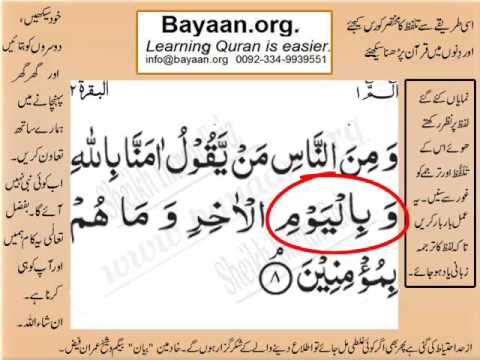 خود سیکھیں،
دوسروں کو بتائیں
اور گھر گھر
پہنچانے میں
ہمارے ساتھ
تعاون کریں۔
اب کوئی نبی نہیں
آئے گا۔ بفضل
تعالٰی یہ کام ہمیں
اور آپ کو ہی
کرنا ہے۔
ان شاء اللہ۔
Bayaan.org.
Learning Quran is easier.
info@bayaan.org 0092-334-9939551
اسی طریقے سے تلفظ کا مختصر کورس کیجئے
اور دِنوں میں قرآن پڑھنا سیکھئے
البقرة ٢
الٓمّٓ ١
وَ مِنَ النَّاسِ مَنْ يَّقُوْلُ اٰمَنَّا بِاللّٰهِ
وَ بِالْيَوْمِ الْاٰخِرِ وَ مَا هُمْ
بِمُؤْمِنِيْنَ ۘ ٨
نمایاں کئے گئے
لفظ پر نظر رکھتے
ھوئے اس کے
تلفّظ اور ترجمے کو
غور سے سنیں۔ یہ
عمل بار بار کریں
تا کہ لفظ کا ترجمہ
زبانی یاد ہو جائے۔
از حد احتیاط کی گئی ہے پھر بھی اگر کوئی غلطی مل جائے تو اطلاع دینے والے کے شکر گزار ہوں گے۔ خادمین "بیان" بیگم و شیخ عمران فیض۔